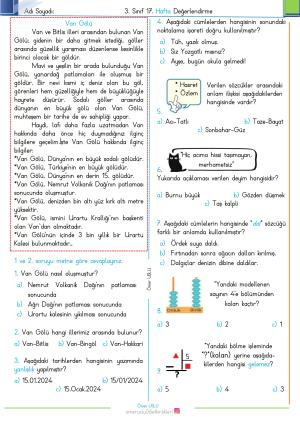 Adı Soyadı:
3. Sınıf 17. Hafta Değerlendirme
Van Gölü
Van ve Bitlis illeri arasından bulunan Van
Gölü; gidenin bir daha gitmek istediği, göller
arasında güzellik yarışması düzenlense kesinlikle
birinci olacak bir göldür.
Mavi ve yeşilin bir arada bulunduğu Van
Gölü, yanardağ patlamaları ile oluşmuş bir
göldür. Bir nevi kami iç deniz olan bu göl,
görenleri hem güzelliğiyle hem de büyüklüğüyle
hayrete düşürür. Sodalı göller arasında
dünyanın en büyük gölü olan Van Gölü,
muhteşem bir tarihe de ev sahipliği yapar.
Haydi, lafı daha fazla uzatmadan Van
hakkında daha önce hiç duymadığınız ilginç
bilgilere geçelim.İşte Van Gölü hakkında ilginç
bilgiler:
*Van Gölü, Dünya'nın en büyük sodalı gölüdür.
*Van Gölü, Türkiye'nin en büyük gölüdür.
*Van Gölü, Dünya'nın en derin 15. gölüdür.
*Van Gölü, Nemrut Volkanik Dağı'nın patlaması
sonucunda oluşmuştur.
*Van Gölü, denizden bin altı yüz kırk altı metre
yüksektir.
*Van Gölü, ismini Urartu Krallığı'nın başkenti
olan Van'dan almaktadır.
*Van Gölü'nün içinde 3 bin yıllık bir Urartu
Kalesi bulunmaktadır..
1 ve 2. soruyu metne göre cevaplayınız.
1. Van Gölü nasıl oluşmuştur?
a) Nemrut Volkanik Dağı'nın patlaması
sonucunda
b) Ağrı Dağı'nın patlaması sonucunda
c) Urartu kalesinin yıkılması sonucunda
2. Van Gölü hangi illerimiz arasında bulunur?
a) Van-Bitlis b) Van-Bingöl c) Van-Hakkari
3. Aşağıdaki tarihlerden hangisinin yazımında
yanlışlık yapılmıştır?
a) 15.01.2024 b) 15/01/2024
c) 15.Ocak.2024
4. Aşağıdaki cümlelerden hangisinin sonundaki
noktalama işareti doğru kullanılmıştır?
a) Tüh, yazık olmuş.
b) Siz Yozgatlı mısınız?
c) Ayşe, bugün okula gelmedi!
* Hasret
Özlem
Verilen sözcükler arasındaki
anlam ilişkisi aşağıdakilerden
hangisinde vardır?
5.
a) Acı-Tatlı b) Taze-Bayat
c) Sonbahar-Güz
"Hiç acıma hissi taşımayan,
merhametsiz"
6.
Yukarıda açıklaması verilen deyim hangisidir?
a) Burnu büyük b) Gözden düşmek
c) Taş kalpli
7. Aşağıdaki cümlelerden hangisinde "da" sözcüğü
farklı bir anlamda kullanılmıştır?
a) Ördek suya daldı.
b) Fırtınadan sonra ağacın dalları kırılmış.
c) Dalgıçlar denizin dibine daldılar.
8.
"Yandaki modellenen
sayının 4'e bölümünden
kalan kaçtır?
a) 3 b) 2 c) 1
9.
"Yandaki bölme işleminde
"?"(kalan) yerine aşağıda-
kilerden hangisi gelemez?
a) 5 b) 4 c) 3
Öner USLU
Öner USLU